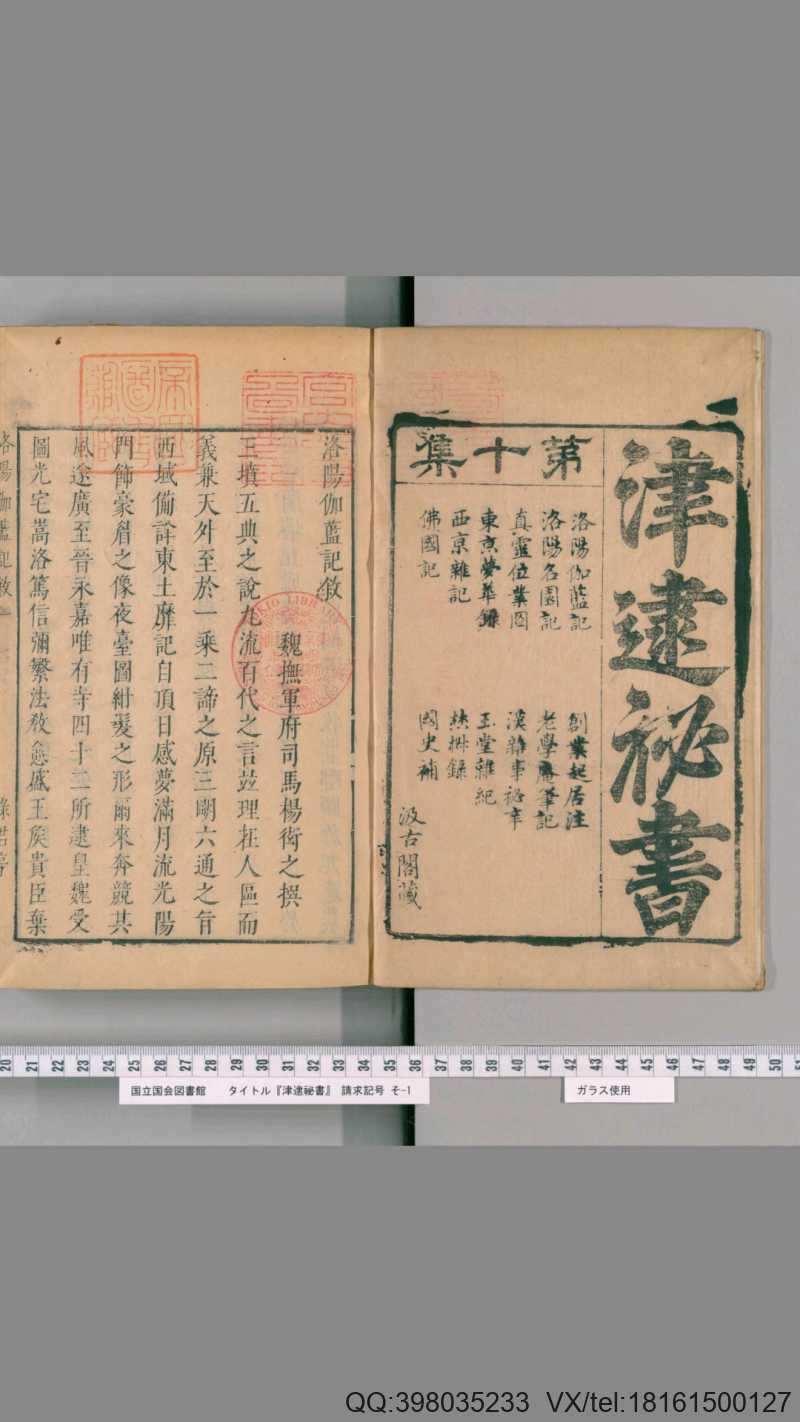 津逮祕書
第十集
洛陽伽藍記
洛陽名園記
真靈位業圖
東京夢華錄
西京雜記
佛國記
創業起居注
老學庵筆記
漢雜事祕辛
玉堂雜紀
焦氏錄
國史補
汲古閣藏
洛陽伽藍記敘
魏撫軍府司馬楊衒之撰
三墳五典之說九流百代之言竝理在人區而
義兼天外至於一乘二諦之原三明六通之旨
西域備詳東土靡記自項日感夢滿月流光陽
門飾豪眉之像夜臺圖紺髮之形爾來奔競其
風遂廣至晉永嘉唯有寺四十二所逮皇魏受
圖光宅嵩洛篤信彌繁法教愈盛王侯貴臣棄
洛陽伽藍記敘 一
20 21 22 23 24 25 26 27 28 29 30 31 32 33 34 35 36 37 38 39 40 41 42 43 44 45 46 47 48 49 50
国立国会図書館 タイトル『津逮秘書』 請求記号 そ-1
ガラス使用
QQ:398035233 VX/tel:18161500127